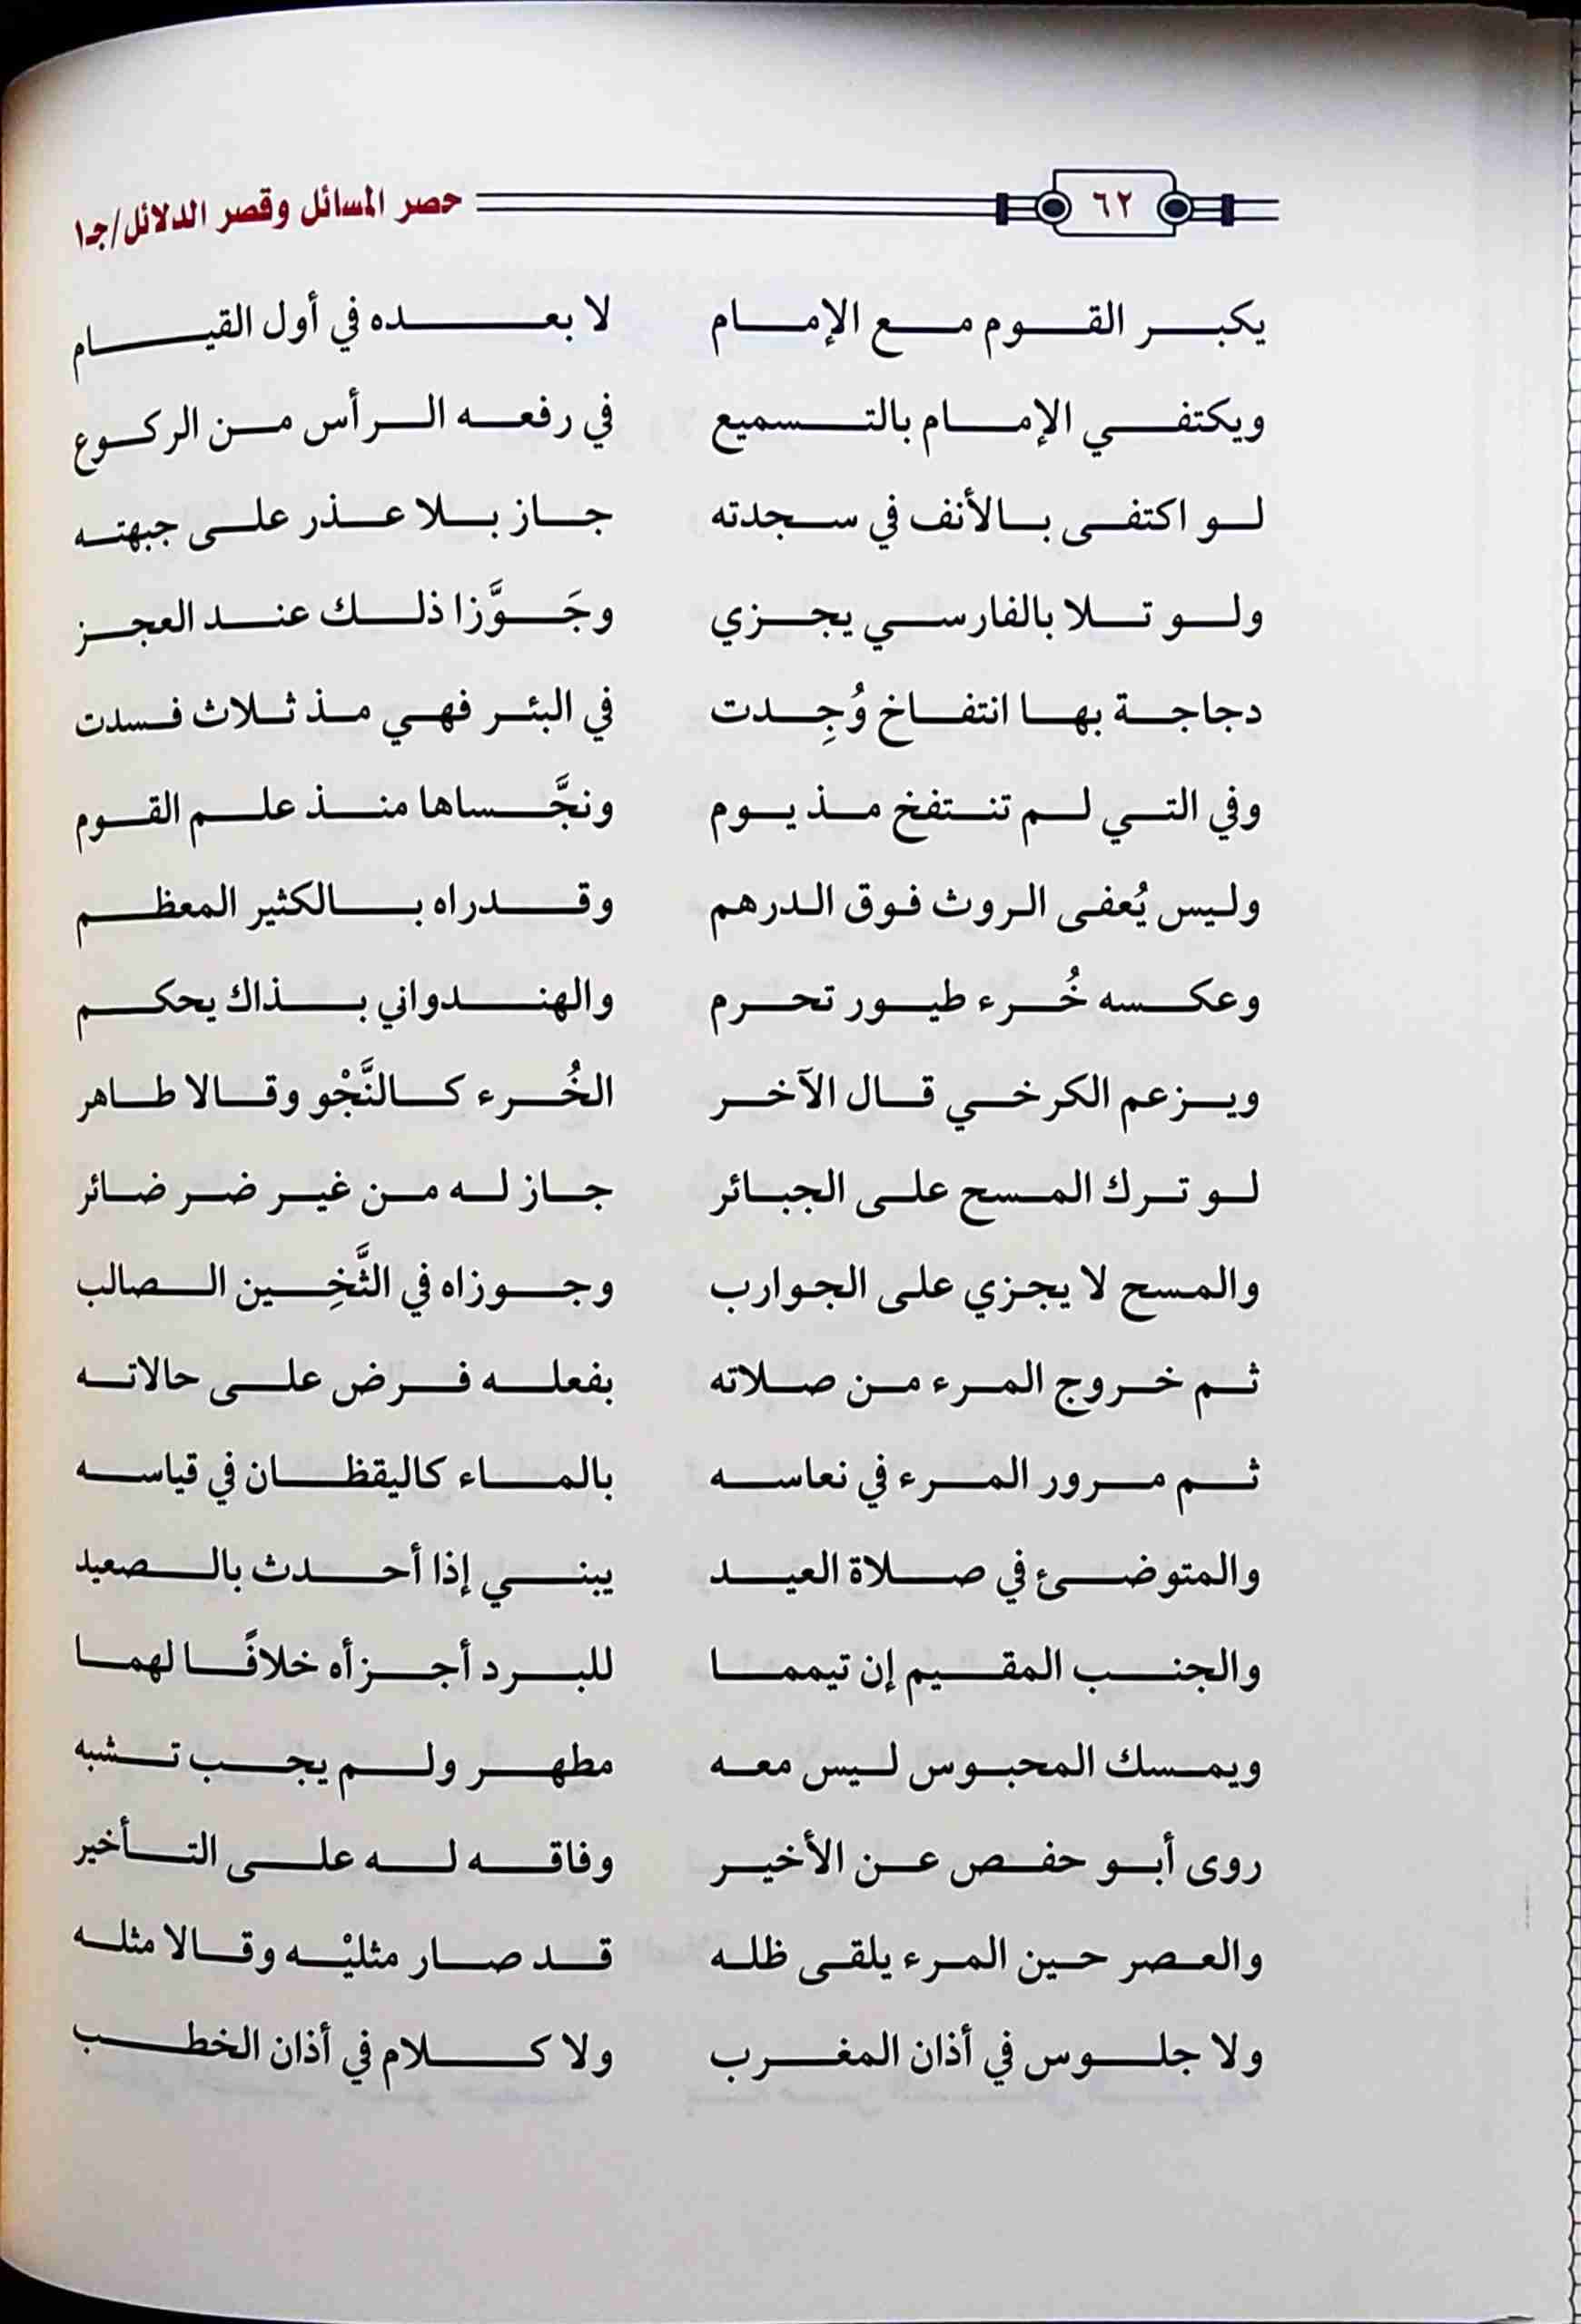 ٦٢ حصر المسائل وقصر الدلائل/جـ١
يكبر القوم مع الإمام لا بعده في أول القيام
ويكتفي الإمام بالتسميع في رفعه الرأس من الركوع
لو اكتفى بالأنف في سجدته جاز بلا عذر على جبهته
ولو تلا بالفارسي يجزي وجَوَّزا ذلك عند العجز
دجاجة بها انتفاخ وُجِدت في البئر فهي مذ ثلاث فسدت
وفي التي لم تنتفخ مذ يوم ونجَّساها منذ علم القوم
وليس يُعفى الروث فوق الدرهم وقدراه بالكثير المعظم
وعكسه خُرء طيور تحرم والهندواني بذاك يحكم
ويزعم الكرخي قال الآخر الخُرء كالنَّجْو وقالا طاهر
لو ترك المسح على الجبائر جاز له من غير ضر ضائر
والمسح لا يجزي على الجوارب وجوزاه في الثَّخِين الصالب
ثم خروج المرء من صلاته بفعله فرض على حالاته
ثم مرور المرء في نعاسه بالماء كاليقظان في قياسه
والمتوضئ في صلاة العيد يبني إذا أحدث بالصعيد
والجنب المقيم إن تيمما للبرد أجزأه خلافًا لهما
ويمسك المحبوس ليس معه مطهر ولم يجب تشبه
روى أبو حفص عن الأخير وفاقه له على التأخير
والعصر حين المرء يلقى ظله قد صار مثليْه وقالا مثله
ولا جلوس في أذان المغرب ولا كلام في أذان الخطب